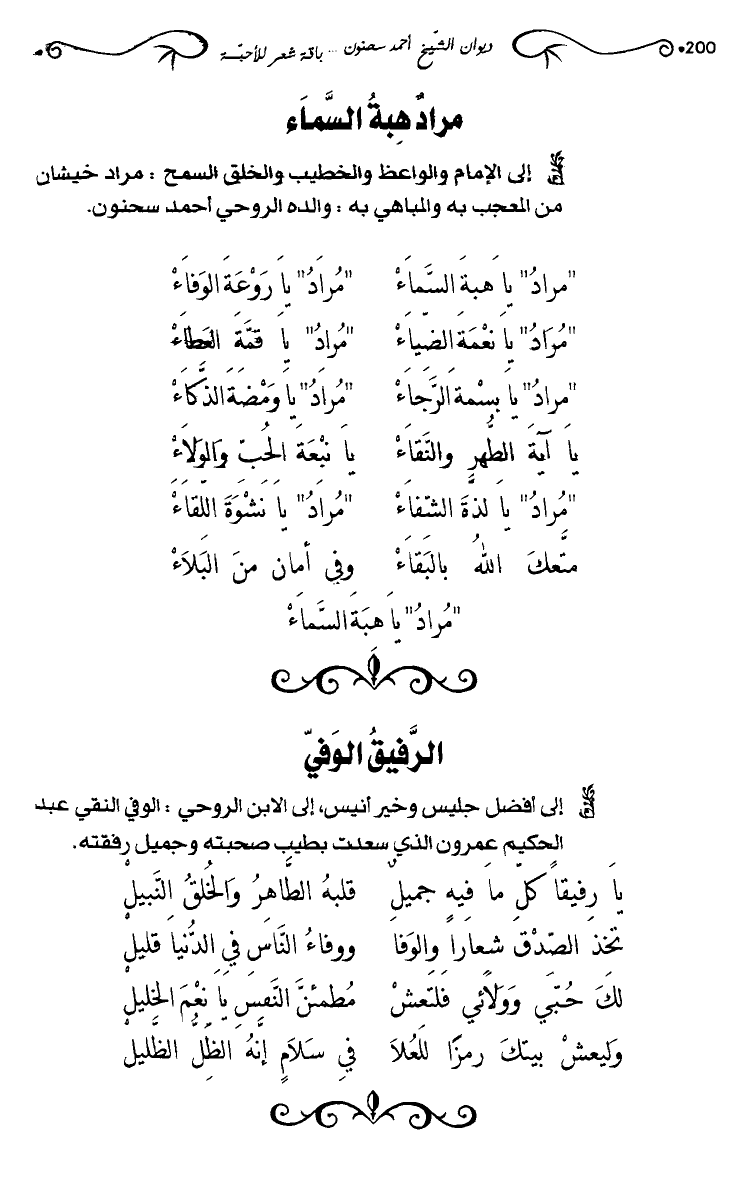 200 ديوان الشّيخ أحمد سحنون ... باقة شعر للأحبّة
مرادُ هِبةُ السَّماَء
إلى الإمام والواعظ والخطيب والخلق السمح : مراد خيشان
من المعجب به والمباهي به : والده الروحي أحمد سحنون.
"مرادُ" ياَ هبةَ السَّماَءْ "مُرَادُ" ياَ رَوْعَةَ الوَفاَءْ
"مُرَادُ" ياَ نعْمَةَ الضيَاءْ "مُرادُ" ياَ قمَّةَ العَطاَءْ
"مرادُ" ياَ بسْمةَ الرَّجاَءْ "مُرادُ" ياَ وَمْضَةَ الذَّكاَءْ
ياَ آيَةَ الطُّهرِ والنَّقاَءْ ياَ نبْعَةَ الحُبّ وَالوَلاَءْ
"مُرادُ" ياَ لذَّةَ الشّفاَءْ "مُرَادُ" ياَ نَشْوَةَ اللّقاَءْ
متَّعكَ اللهُ بالبَقاَءْ وفي أمان منَ البَلاَءْ
"مُرادُ" ياَ هبَةَ السَّماَءْ
الرَّفيقُ الوَفيّ
إلى أفضل جليس وخير أنيس، إلى الابن الروحي : الوفي النقي عبد
الحكيم عمرون الذي سعدت بطيب صحبته وجميل رفقته.
ياَ رِفيقاً كلّ ماَ فيهِ جميلٌ قلبهُ الطَّاهرُ وَالخُلقُ النَّبيلْ
تخذ الصّدْق شعاراً والوَفا ووفاءُ النَّاسِ فيِ الدُّنياَ قليلْ
لكَ حُبّي وَوَلاَئي فلتَعشْ مُطمئنَّ النَّفسِ ياَ نعْمَ الخليلْ
وَليعشْ بيتكَ رمزًا للعُلاَ فيِ سَلاَمٍ إنَّهُ الظّلُّ الظَّليلْ